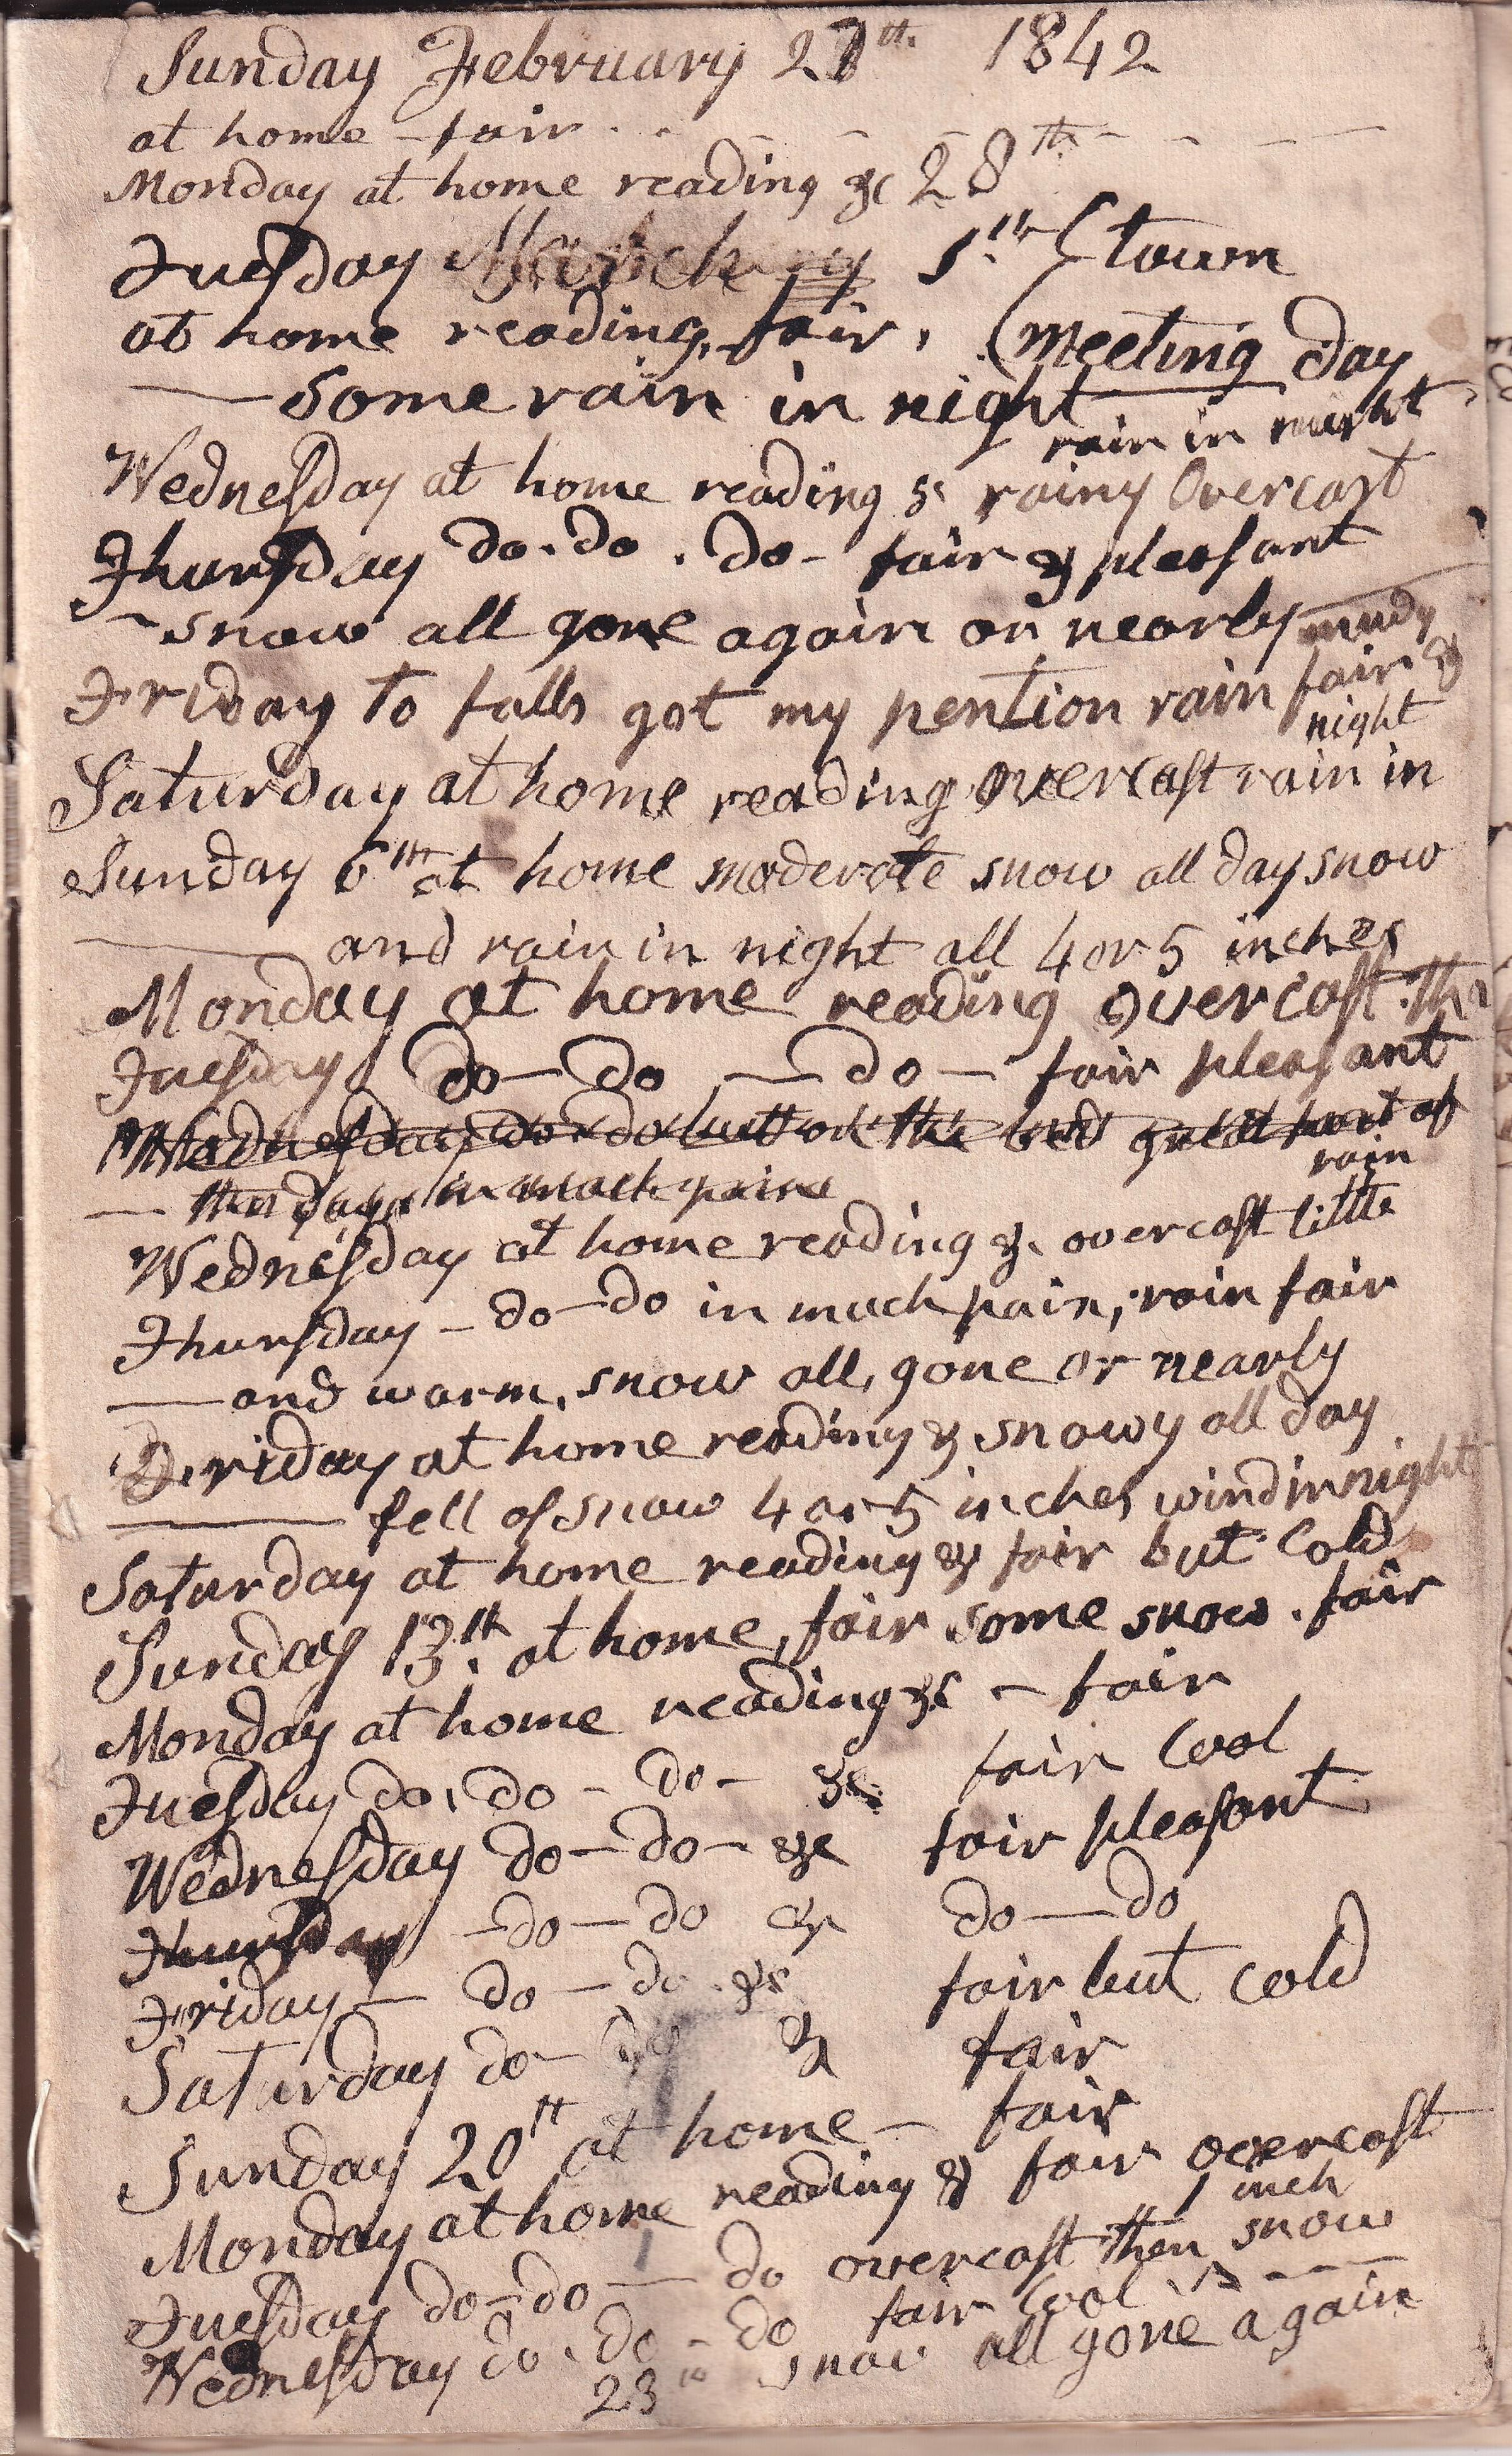 Sunday February 27th 1842
at home - fair . .
Monday at home reading &c 28th
Tuesday March 1st. (town
at home reading, fair, (meeting day
— some rain in night
rain in night
Wednesday at home reading &c rainy Overcast
Thursday do. do. do - fair & pleasant
~ snow all gone again or nearly mudy
Friday to falls got my pention rain fair &
night
Saturday at home reading overcast rain in
Sunday 6th at home moderate snow all day snow
— and rain in night all 4 or 5 inches
Monday at home reading overcast
Tuesday do - do — do - fair pleasant
Wednesday do do but on the bed great part of
— the day in much pain
rain
Wednesday at home reading &c overcast little
Thursday - do - do in much pain, rain fair
— and warm, snow all, gone or nearly
Friday at home reading & snowy all day
— fell of snow 4 or 5 inches wind in night
Saturday at home reading & fair but Cold
Sunday 13th. at home, fair some snow. fair
Monday at home reading &c - fair
Tuesday do, do - do - &c. fair Cool
Wednesday do - do - &c fair pleasant
Thursday - do — do & do — do
Friday — do — do &c fair but cold
Saturday do - do & fair
Sunday 20th at home - fair
Monday at home reading & fair overcast
1 inch
Tuesday do - do — do overcast then snow
fair Cool
Wednesday do. do - do snow all gone again
23